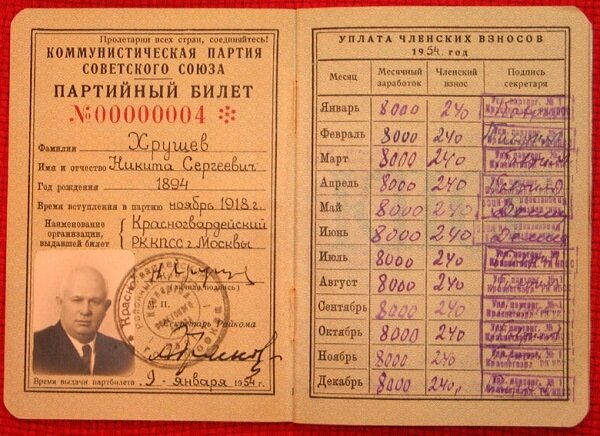 Пролетарии всех стран, соединяйтесь!
КОММУНИСТИЧЕСКАЯ ПАРТИЯ
СОВЕТСКОГО СОЮЗА
ПАРТИЙНЫЙ БИЛЕТ
№00000004
Фамилия Хрущев
Имя и отчество Никита Сергеевич
Год рождения 1894
Время вступления в партию ноябрь 1918 г.
Наименование организации, выдавшей билет Красногвардейский
РК КПСС г. Москвы
(личная подпись)
М. П.
Секретарь Райкома
Время выдачи партбилета 9 января 1954 г.
УПЛАТА ЧЛЕНСКИХ ВЗНОСОВ
1954. год
Месяц Месячный заработок Членский взнос Подпись секретаря
Январь 8000 240
Февраль 8000 240
Март 8000 240
Апрель 8000 240
Май 8000 240
Июнь 8000 240
Июль 8000 240
Август 8000 240
Сентябрь 8000 240
Октябрь 8000 240
Ноябрь 8000 240
Декабрь 8000 240